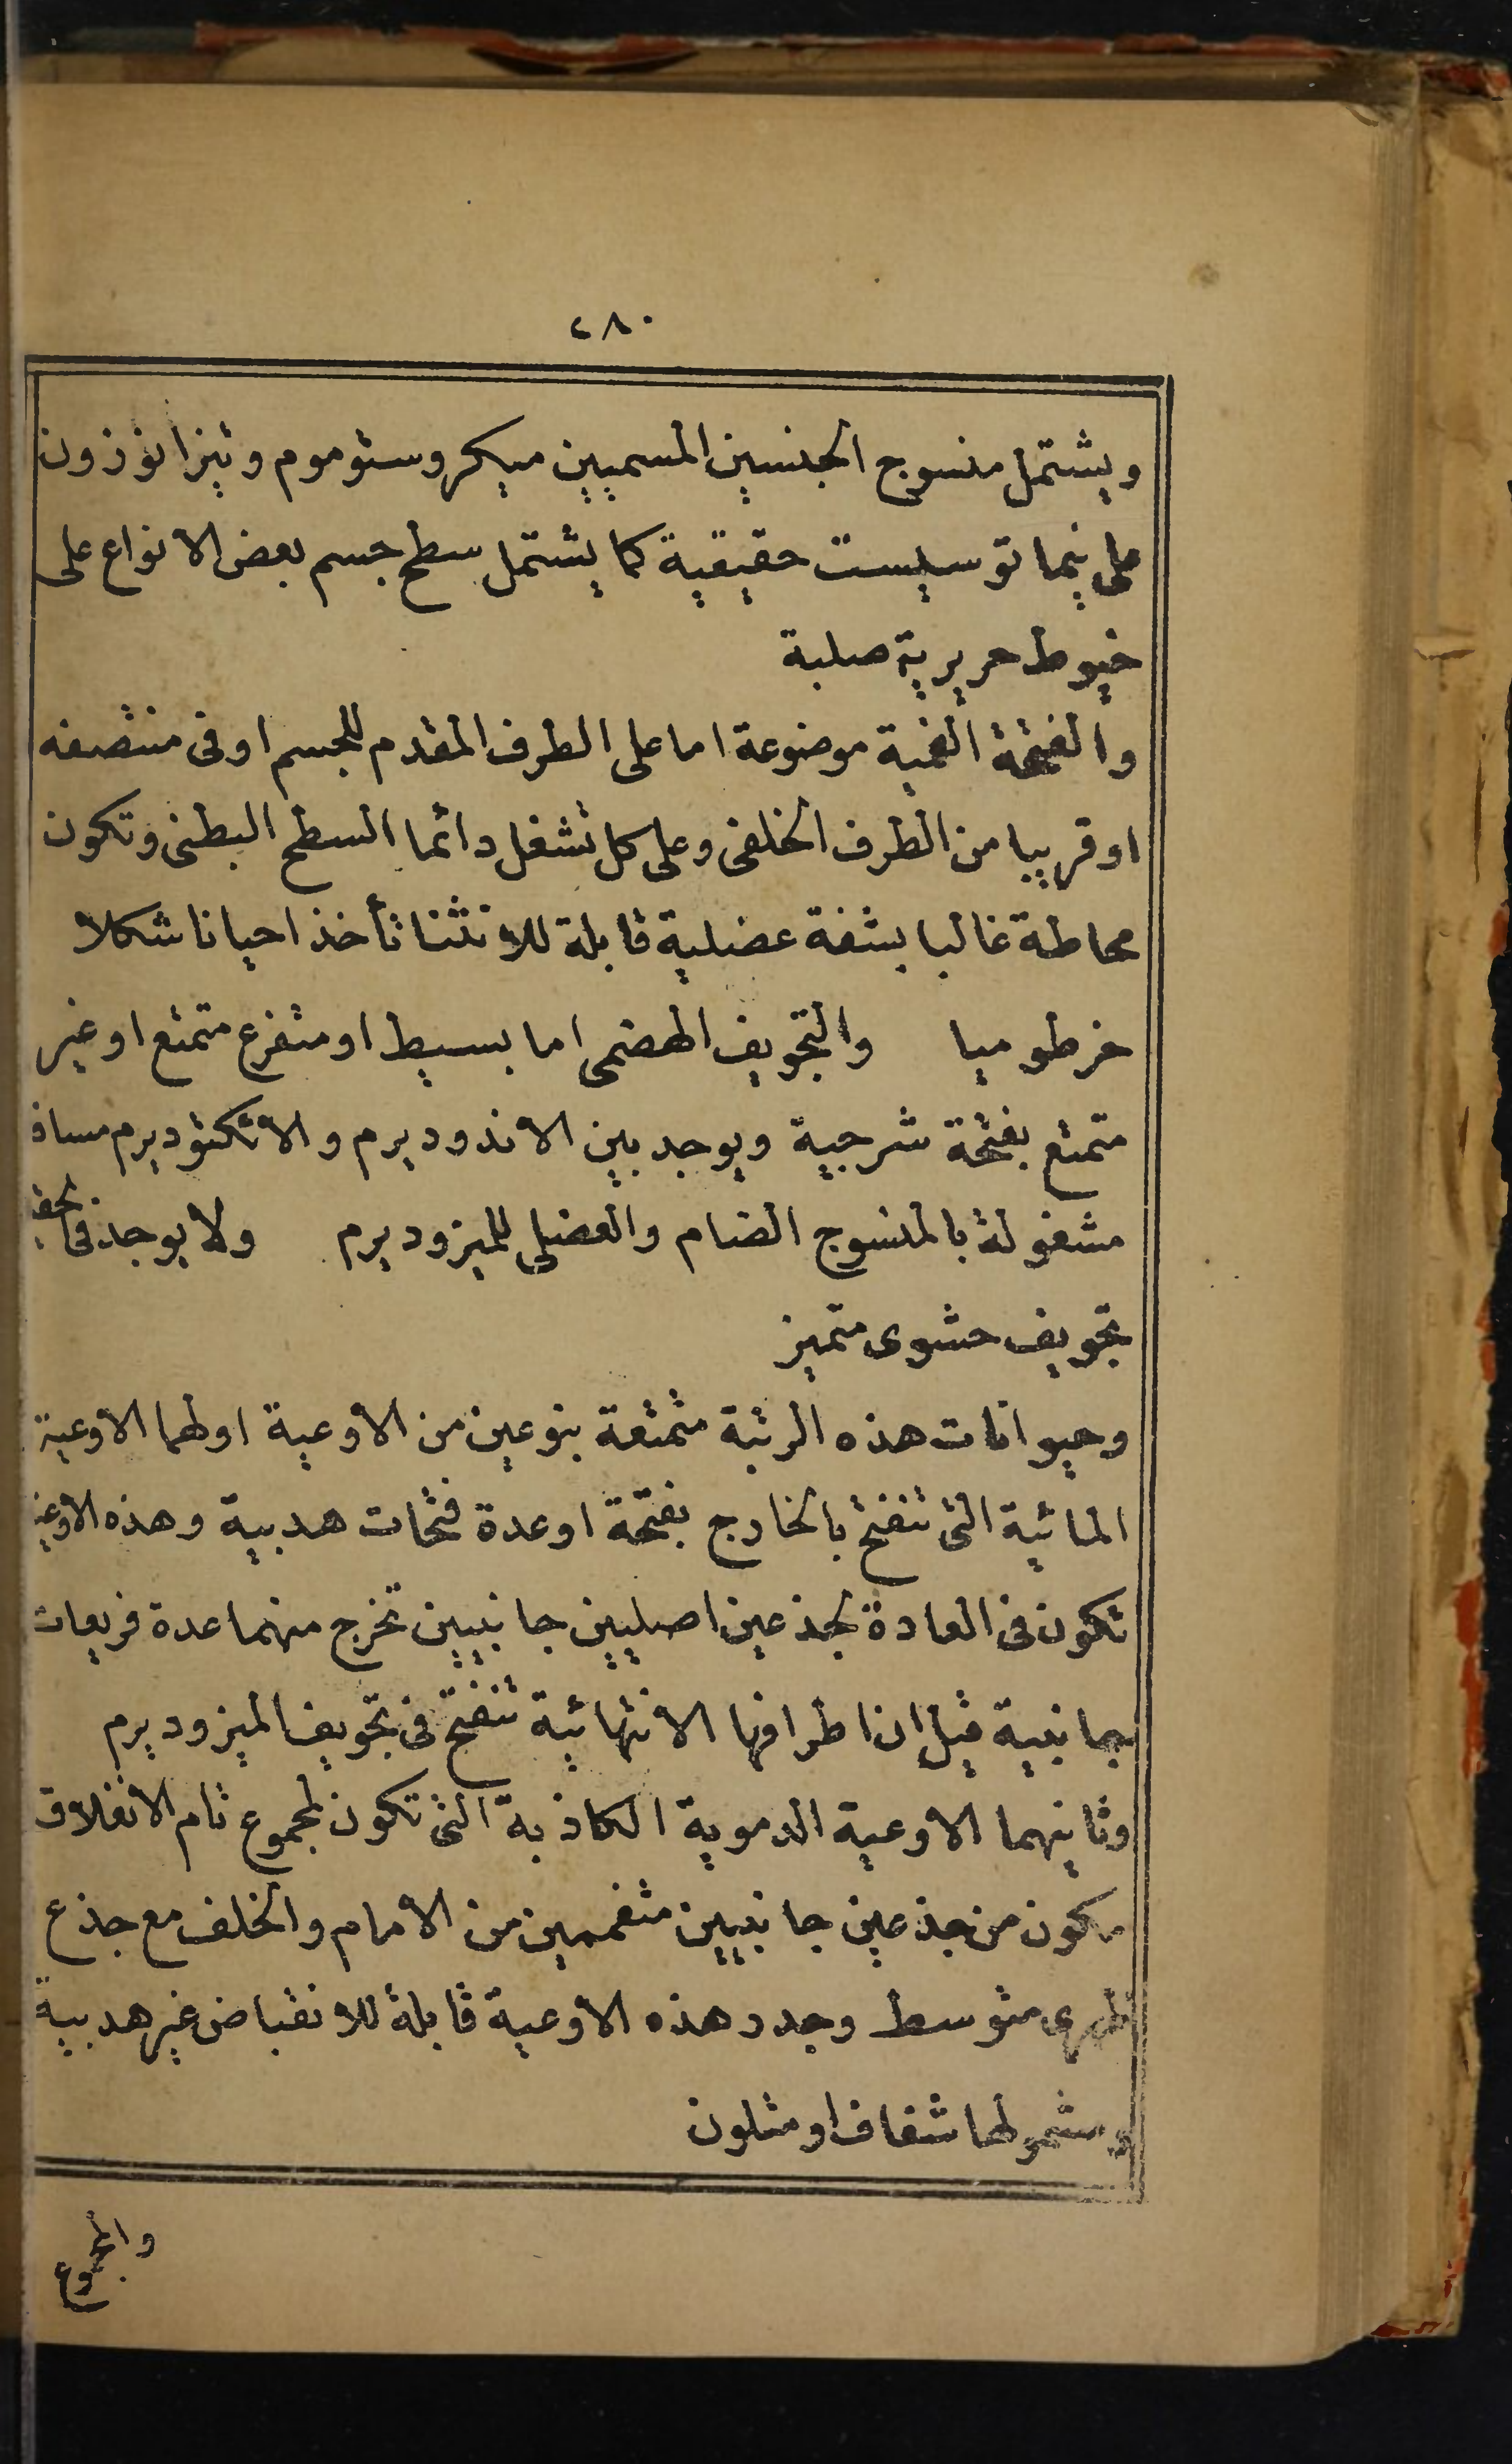 ٢٨٠
ويشتمل منسوج الجنسين المسميين ميكروستوموم وتيزانوزون
على نيماتوسيست حقيقية كما يشتمل سطح جسم بعض الانواع على
خيوط حريرية صلبة
والفتحة الفمية موضوعة اما على الطرف المقدم للجسم او فى منتصفه
او قريبا من الطرف الخلفى وعلى كل تشغل دائما السطح البطنى وتكون
محاطة غالبا بشفة عضلية قابلة للانثنا تأخذ احيانا شكلا
خرطوميا والتجويف الهضمى اما بسيط او متفرع متمتع او غير
متمتع بفتحة شرجية ويوجد بين الاندوديرم والاتكتوديرم مسافة
مشغولة بالمنسوج الضام والعضلى للميزوديرم ولا يوجد فى
تجويف حشوى متميز
وحيوانات هذه الرتبة متمتعة بنوعين من الأوعية اولهما الاوعية
المائية التى تنفتح بالخارج بفتحة او عدة فتحات هدبية وهذه الاوعية
تكون فى العادة لجذعين اصليين جانبيين تخرج منهما عدة فريعات
جانبية قيل ان اطرافها الانتهائية تنفتح فى تجويف الميزوديرم
وثانيهما الاوعية الدموية الكاذبة التى تكون لمجموع تام الانغلاق
مكون من جذعين جانبيين متفممين من الامام والخلف مع جذع
ظهرى متوسط وجدر هذه الأوعية قابلة للانقباض غير هدبية
ومشمولها شفاف او متلون
والمجموع